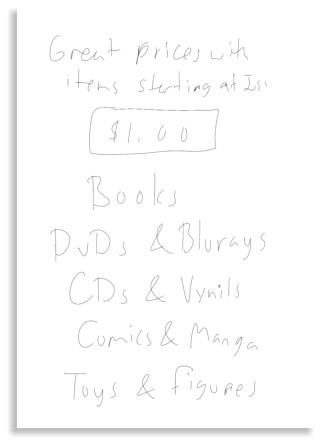 Great prices with
items starting at Just
$1.00
Books
DvDs & Blurays
CDs & Vynils
Comics & Manga
Toys & figures